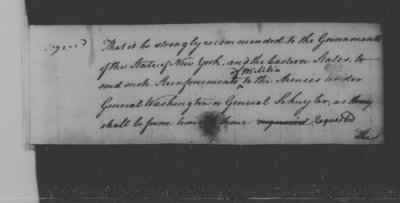 agreed That it be strongly recommended to the Governments
of the State of New York, and the Eastern States, to
of Militia
send such Reinforcements ^ to the Armies under
General Washington or General Schuyler, as they
shall be from time to time required Requested